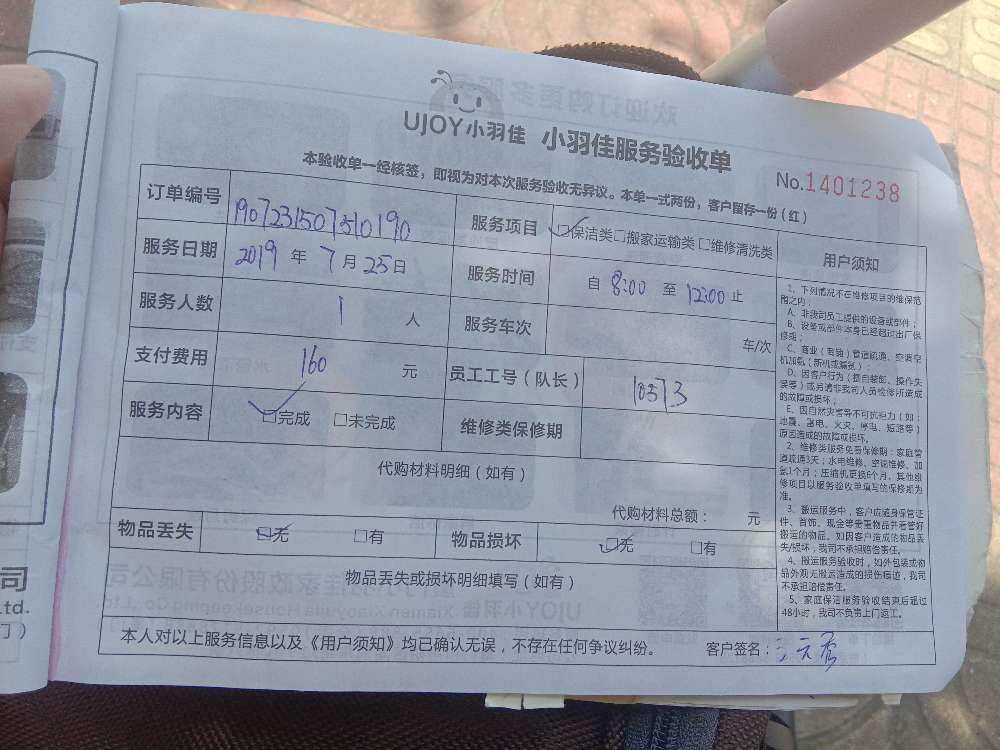 UJOY小羽佳 小羽佳服务验收单
本验收单一经核签，即视为对本次服务验收无异议。本单一式两份，客户留存一份（红）
No.1401238
订单编号 1907231507310190 服务项目 ☑保洁类□搬家运输类□维修清洗类
服务日期 2019 年 7 月 25 日 服务时间 自 8:00 至 12:00 止
服务人数 1 人 服务车次 车/次
支付费用 160 元 员工工号（队长） 10373
服务内容 ☑完成 □未完成 维修类保修期
代购材料明细（如有）
代购材料总额： 元
物品丢失 ☑无 □有 物品损坏 ☑无 □有
物品丢失或损坏明细填写（如有）
本人对以上服务信息以及《用户须知》均已确认无误，不存在任何争议纠纷。 客户签名：
用户须知
1、下列情况不在维修项目的维保范
围之内：
A、非我司员工提供的设备或部件；
B、设备或部件本身已经超过出厂保
修期；
C、商业（商铺）管道疏通、空调空
机加氨（新机或漏氨）；
D、因客户行为（擅自装卸、操作失
误等）或另请非我司人员检修所造成
的故障或损坏；
E、因自然灾害等不可抗拒力（如：
地震、雷电、火灾、停电、短路等）
原因造成的故障或损坏。
2、维修类服务免费保修期：家庭管
道疏通3天；水电维修、空调维修、加
氨1个月；压缩机更换6个月，其他维
修项目以服务验收单填写的保修期为
准。
3、搬运服务中，客户应随身保管证
件、首饰、现金等贵重物品并看管好
搬运的物品。如因客户造成的物品丢
失/损坏，我司不承担赔偿责任。
4、搬运服务验收时，如外包装或物
品外观无搬运造成的损伤痕迹，我司
不承担赔偿责任。
5、家庭保洁服务验收结束后超过
48小时，我司不负责上门返工。
司
td.
门）